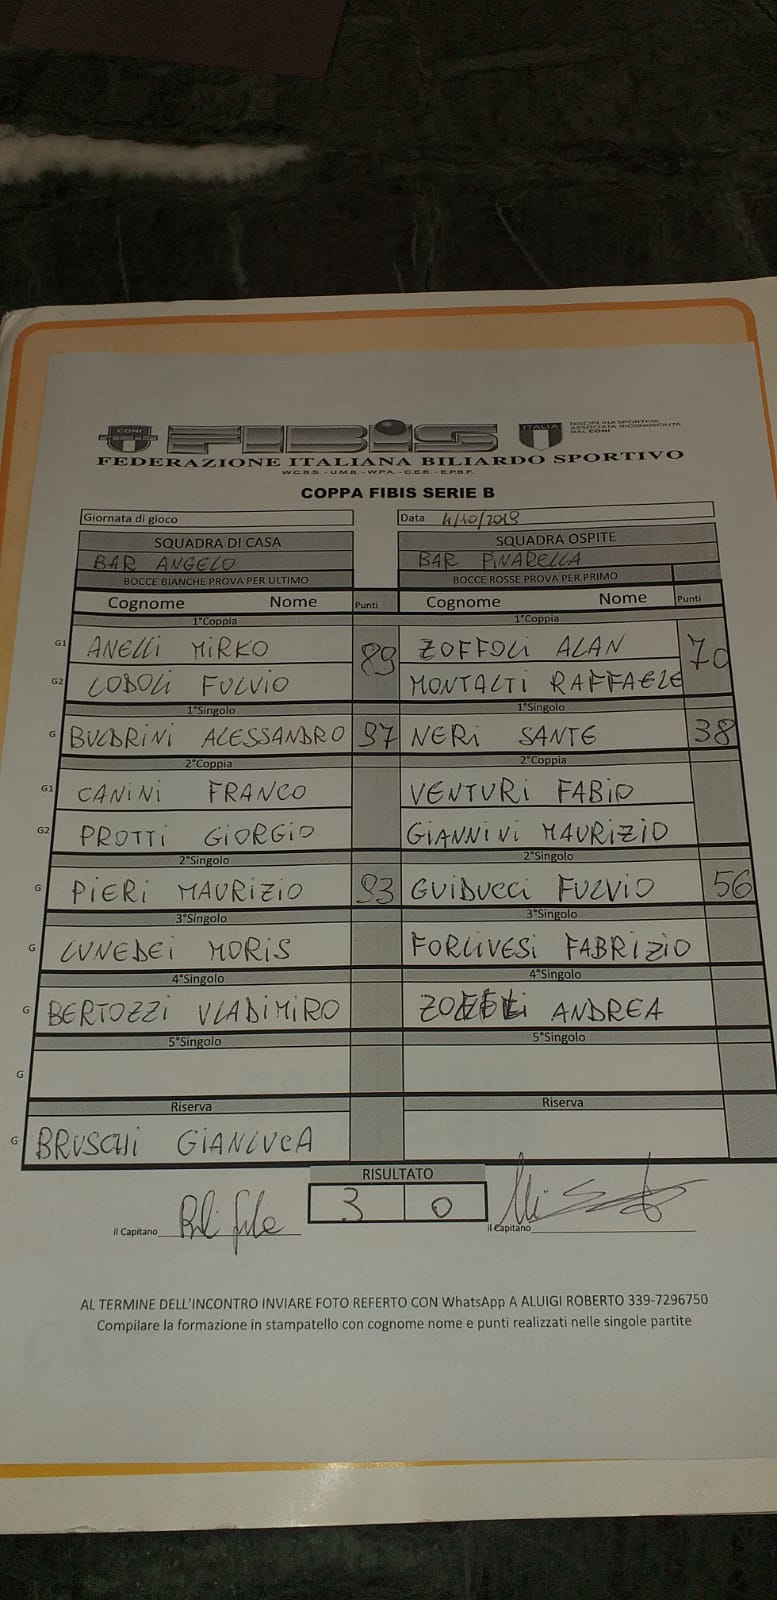 CONI
FIBIS
ITALIA
DISCIPLINA SPORTIVA
ASSOCIATA RICONOSCIUTA
DAL CONI
FEDERAZIONE ITALIANA BILIARDO SPORTIVO
W.C.B.S. - U.M.B. - W.P.A. - C.E.B. - E.P.B.F.
COPPA FIBIS SERIE B
Giornata di gioco Data 4/10/2019
SQUADRA DI CASA SQUADRA OSPITE
BAR ANGELO BAR PINARELLA
BOCCE BIANCHE PROVA PER ULTIMO BOCCE ROSSE PROVA PER PRIMO
Cognome Nome Punti Cognome Nome Punti
1°Coppia 1°Coppia
G1 ANELLI MIRKO 89 ZOFFOLI ALAN 70
G2 LODOLI FULVIO MONTALTI RAFFAELE
1°Singolo 1°Singolo
G BULDRINI ALESSANDRO 97 NERI SANTE 38
2°Coppia 2°Coppia
G1 CANINI FRANCO VENTURI FABIO
G2 PROTTI GIORGIO GIANNINI MAURIZIO
2°Singolo 2°Singolo
G PIERI MAURIZIO 93 GUIDUCCI FULVIO 56
3°Singolo 3°Singolo
G LUNEDEI MORIS FORLIVESI FABRIZIO
4°Singolo 4°Singolo
G BERTOZZI VLADIMIRO ANDREA
5°Singolo 5°Singolo
G
Riserva Riserva
G BRUSCHI GIANLUCA
RISULTATO
3 0
il Capitano il Capitano
AL TERMINE DELL'INCONTRO INVIARE FOTO REFERTO CON WhatsApp A ALUIGI ROBERTO 339-7296750
Compilare la formazione in stampatello con cognome nome e punti realizzati nelle singole partite